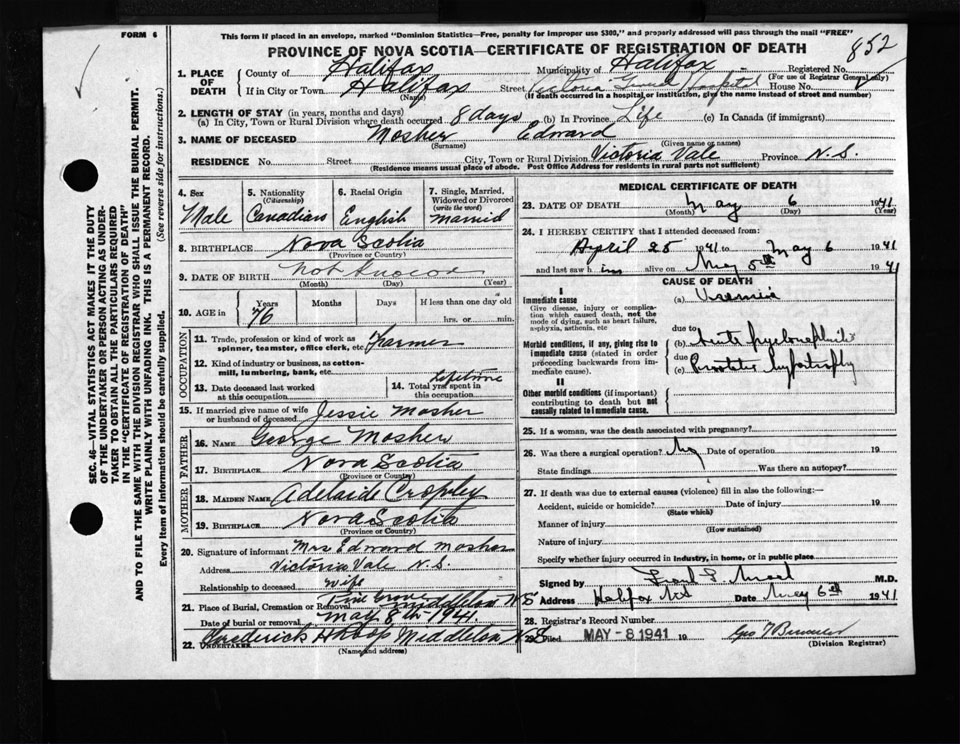 FORM 6
This form if placed in an envelope, marked "Dominion Statistics—Free, penalty for improper use $300," and properly addressed will pass through the mail "FREE"
PROVINCE OF NOVA SCOTIA—CERTIFICATE OF REGISTRATION OF DEATH
852
1. PLACE OF DEATH
County of Halifax Municipality of Halifax Registered No.
(For use of Registrar General only)
If in City or Town Halifax Street Victoria General Hospital House No.
(Name) (If death occurred in a hospital or institution, give the name instead of street and number)
2. LENGTH OF STAY (in years, months and days)
(a) In City, Town or Rural Division where death occurred 8 days (b) In Province Life (c) In Canada (if immigrant)
3. NAME OF DECEASED Mosher Edward
(Surname) (Given name or names)
RESIDENCE No. Street City, Town or Rural Division Victoria Vale Province N.S.
(Residence means usual place of abode. Post Office Address for residents in rural parts not sufficient)
4. Sex Male
5. Nationality (Citizenship) Canadian
6. Racial Origin English
7. Single, Married, Widowed or Divorced (write the word) Married
8. BIRTHPLACE Nova Scotia
(Province or Country)
9. DATE OF BIRTH not known
(Month) (Day) (Year)
10. AGE in Years Months Days If less than one day old
76 hrs. or min.
OCCUPATION
11. Trade, profession or kind of work as spinner, teamster, office clerk, etc. Farmer
12. Kind of industry or business, as cotton-mill, lumbering, bank, etc.
13. Date deceased last worked at this occupation
14. Total yrs. spent in this occupation Lifetime
15. If married give name of wife or husband of deceased Jessie Mosher
FATHER
16. NAME George Mosher
17. BIRTHPLACE Nova Scotia
(Province or Country)
MOTHER
18. MAIDEN NAME Adelaide Cropley
19. BIRTHPLACE Nova Scotia
(Province or Country)
20. Signature of informant Mrs Edward Mosher
Address Victoria Vale N.S.
Relationship to deceased wife
21. Place of Burial, Cremation or Removal Pine Grove Middleton N.S.
Date of burial or removal May 8th 1941
22. UNDERTAKER Frederick Middleton N.S.
(Name and address)
MEDICAL CERTIFICATE OF DEATH
23. DATE OF DEATH May 6 1941
(Month) (Day) (Year)
24. I HEREBY CERTIFY that I attended deceased from:
April 25 1941 to May 6 1941
and last saw him alive on May 5th 1941
CAUSE OF DEATH
I
Immediate cause
Give disease, injury or complication which caused death, not the mode of dying, such as heart failure, asphyxia, asthenia, etc
(a) Uremia
due to
Morbid conditions, if any, giving rise to immediate cause (stated in order proceeding backwards from immediate cause).
(b) Acute pyelonephritis
due
(c) Prostatic hypertrophy
II
Other morbid conditions (if important) contributing to death but not causally related to immediate cause.
25. If a woman, was the death associated with pregnancy?
26. Was there a surgical operation? No Date of operation 19
State findings Was there an autopsy?
27. If death was due to external causes (violence) fill in also the following:—
Accident, suicide or homicide? Date of injury 19
(State which)
Manner of injury
(How sustained)
Nature of injury
Specify whether injury occurred in industry, in home, or in public place
Signed by M.D.
Address Halifax NS Date May 6th 1941
28. Registrar's Record Number
29. Filed MAY - 8 1941 19
(Division Registrar)
SEC. 46—VITAL STATISTICS ACT MAKES IT THE DUTY
OF THE UNDERTAKER OR PERSON ACTING AS UNDER-
TAKER TO OBTAIN ALL THE PARTICULARS REQUIRED
IN THE "CERTIFICATE OF REGISTRATION OF DEATH"
AND TO FILE THE SAME WITH THE DIVISION REGISTRAR WHO SHALL ISSUE THE BURIAL PERMIT.
WRITE PLAINLY WITH UNFADING INK. THIS IS A PERMANENT RECORD.
Every item of information should be carefully supplied. (See reverse side for instructions.)